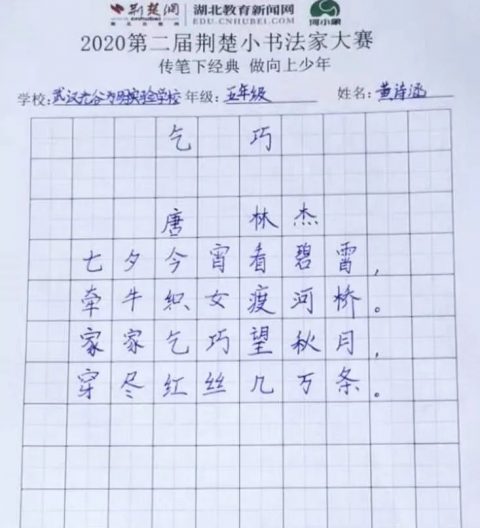 荆楚网
www.cnhubei.com
湖北教育新闻网
EDU.CNHUBEI.COM
河小象
2020第二届荆楚小书法家大赛
传笔下经典 做向上少年
学校:武汉光谷为明实验学校 年级:五年级 姓名:黄诗涵
乞巧
唐 林杰
七夕今宵看碧霄,
牵牛织女疲河桥。
家家乞巧望秋月,
穿尽红丝几万条。